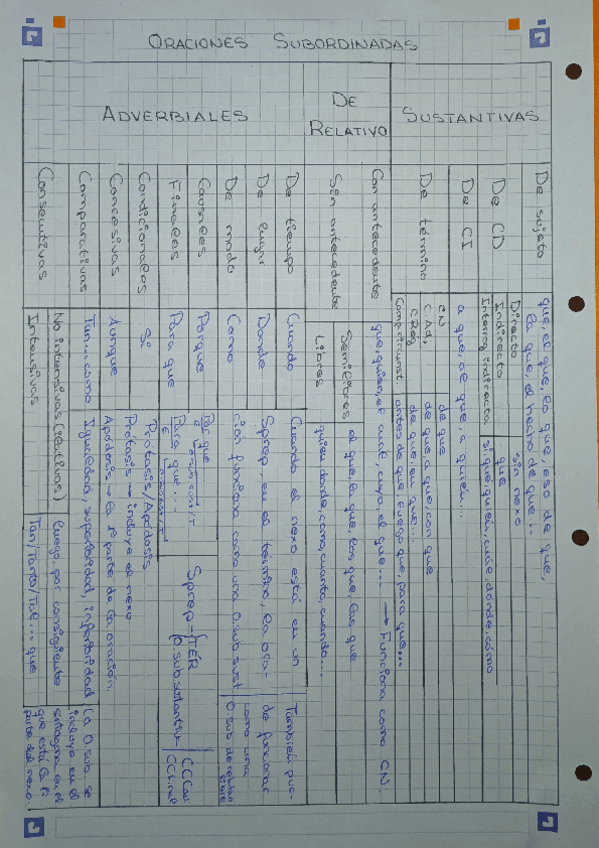 ORACIONES SUBORDINADAS
SUSTANTIVAS
De sujeto
que, el que, lo que, eso de que,
la que, el hecho de que...
De CD
Directo
sin nexo
Indirecto
que
Interrog. indirecta
si, qué, quién, cuál, dónde, cómo
De CI
a que, de que, a quien...
De término
CN
de que
C.Ad.
de que, a que, con que
C.Rég
de que, en que...
Comp. circunst.
antes de que, luego que, para que...
DE RELATIVO
Con antecedente
que, quien, el cual, cuyo, el que... → Funciona como CN.
Sin antecedente
Semilibres
el que, la que, los que, las que
Libres
quien, donde, como, cuanto, cuando...
ADVERBIALES
De tiempo
Cuando
De lugar
Donde
De modo
Como
Cuando el nexo está en un
Sprep en el término, la ora-
ción funciona como una O.sub.sust
También pue-
de funcionar
como una
O.sub de relativo
libre
Causales
Porque
Por que
Finales
Para que
Para que...
Sprep-TÉR
O.sub.sustantiva
CCCau
CCFinal
Condicionales
Si
Prótasis/Apódosis
Concesivas
Aunque
Prótasis → incluye el nexo
Apódosis → la 1ª parte de la oración.
Comparativas
Tan... como
Igualdad, superioridad, inferioridad
Consecutivas
No intensivas (ilativas)
luego, por consiguiente
Intensivas
Tan/Tanto/Tal... que
La O.sub. se
incluye en el
sintagma en el
que está la 1ª
parte del nexo.